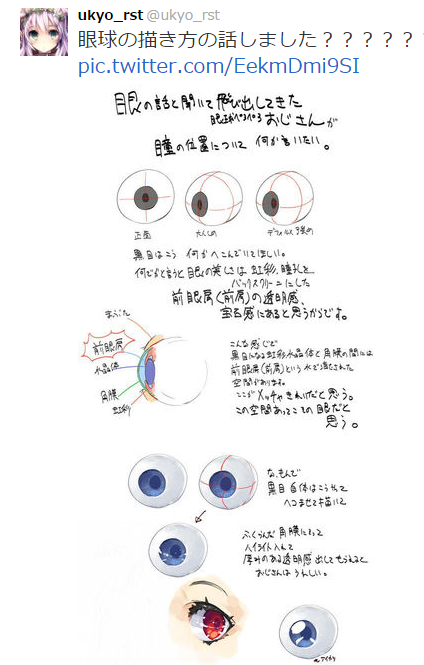 ukyo_rst @ukyo_rst
眼球の描き方の話しました？？？？？？
pic.twitter.com/EekmDmi9SI
眼の話と聞いて飛び出してきた
眼球ぺろぺろおじさんが
瞳の位置について何か言いたい。
正面
デフォルメ
黒目はこう 何かへこんでいてほしい。
何でかと言うと眼の美しさは虹彩、瞳孔を
バックスクリーンにした
前眼房(前房)の透明感、
宝石感にあると思うからです。
まぶた
前眼房
水晶体
角膜
虹彩
こんな感じで
黒目になる虹彩水晶体と角膜の間には
前眼房(前房)という水で満たされた
空間があります。
ここがメッチャきれいだと思う。
この空間あってこその眼だと
思う。
なもんで
黒目自体はこうやって
へこませて描いて
ふくらんだ角膜にそって
ハイライト入れて
厚みのある透明感出してもらえると
おじさんはうれしい。